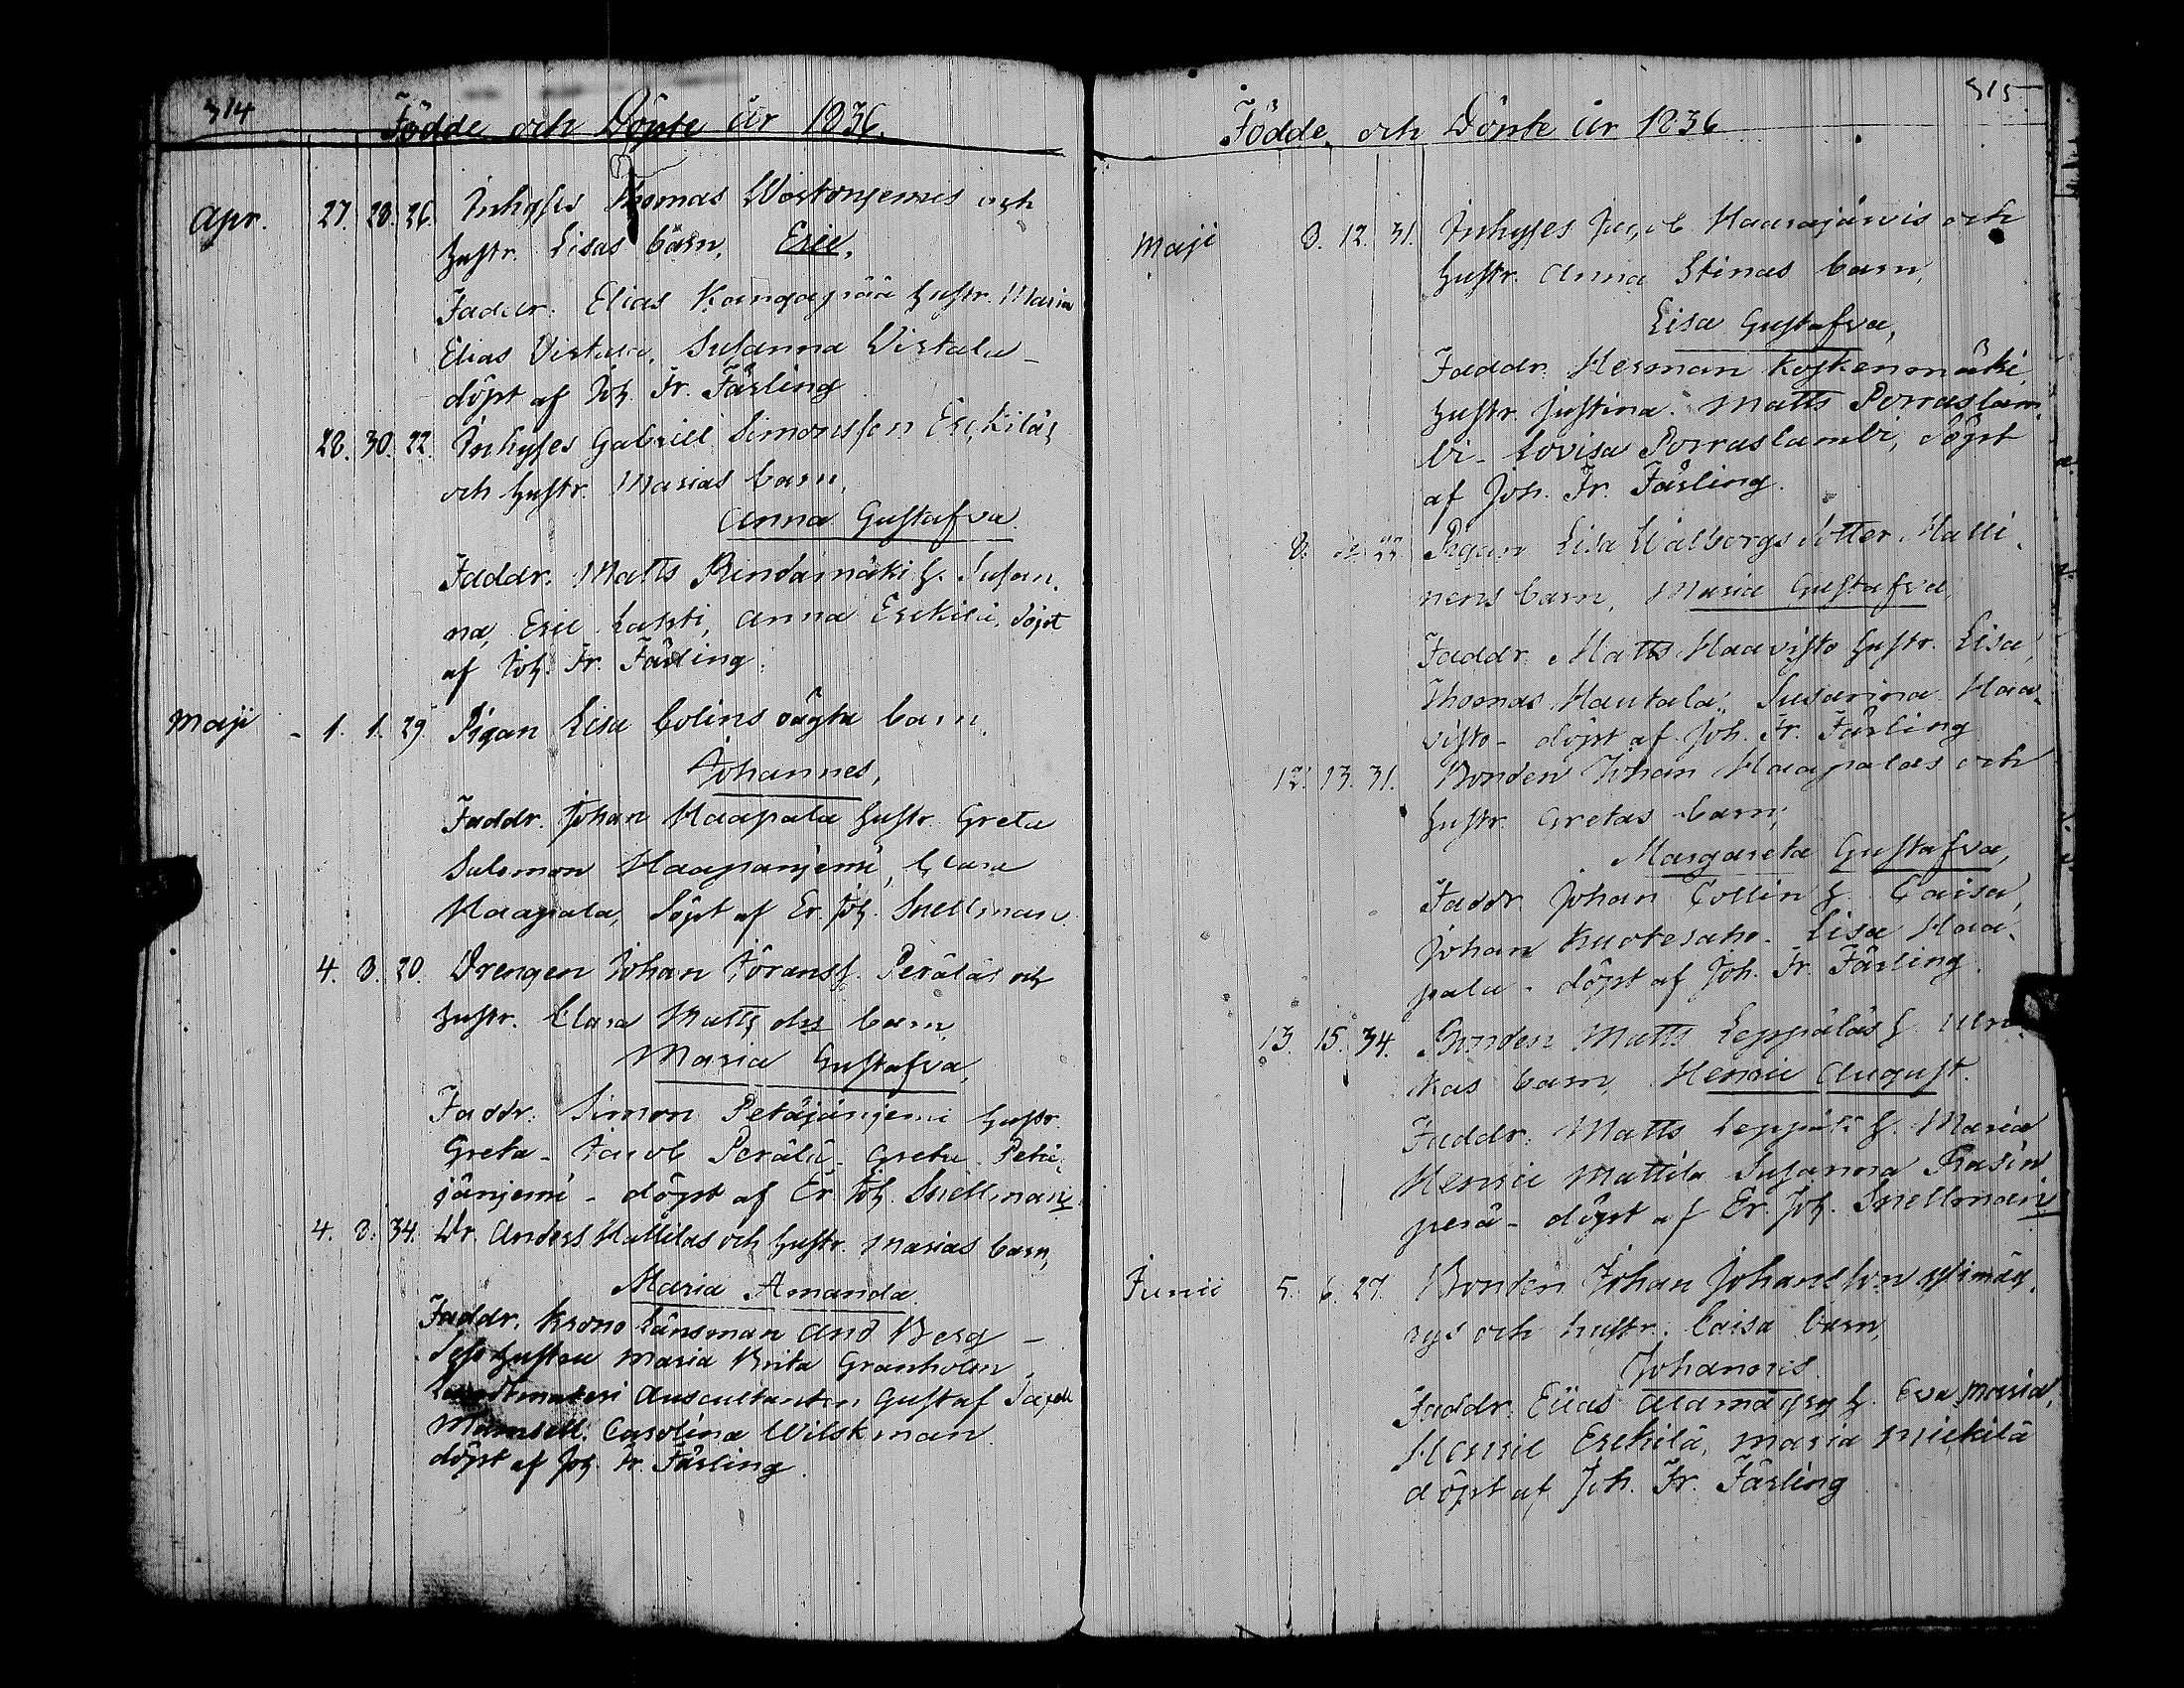 314
Födde och Döpte år 1836.
Apr. 27. 28. 26. Inhyses Thomas Wörtonjemis och
hustr. Lisas barn, Eric,
Faddr. Elias Kangaspää hustr. Maria
Elias Virtala, Susanna Virtala -
döpt af Joh. Fr. Färling
28. 30. 22. Inhyses Gabriel Simonsson Erckiläs
och hustr. Marias barn,
Anna Gustafva
Faddr. Matts Rindamäki h. Susan
na, Eric Lahti, Anna Erckilä, döpt
af Joh. Fr. Färling.
Maji - 1. 1. 29. Pigan Lisa Colins oägta barn,
Johannes,
Faddr. Johan Haapala hustr. Greta
Salomon Haapanjemi, Clara
Haapala, döpt af Er. Joh. Snellman
4. 8. 20. Drengen Johan Jöranss. Peräläs och
hustr. Clara Matts drs barn,
Maria Gustafva,
Faddr. Simon Petäjänjemi hustr.
Greta - Jacob Perälä - Greta Petä,
jänjemi - döpt af Er. Joh. Snellman
4. 8. 34. Dr. Anders Hallilas och hustr. Marias barn,
Maria Amanda
Faddr. Krono Länsman And Berg -
Dess hustru Maria Brita Granholm
Landtmäteri Auscultanten Gustaf
Mamsell. Carolina Wilskman
döpt af Joh. Fr. Färling.
315
Födde, och Döpte år 1836
Maji 8. 12. 31. Inhyses Jacob Haarajärvis och
hustr. Anna Stinas barn,
Lisa Gustafva,
Faddr. Herman Koskenmäki
hustr. Justina. Matts Porraslam
bi - Lovisa Porraslambi, döpt
af Joh. Fr. Färling.
8. 22. Pigan Lisa Walborgs dotter Halli,
nens barn, Maria Gustafva
Faddr. Matts Haavisto hustr. Lisa,
Thomas Hautala, Susanna Haa,
visto - döpt af Joh. Fr. Färling
12. 13. 31. Bonden Johan Haapalas och
hustr. Gretas barn;
Margareta Gustafva,
Faddr. Johan Collin h. Caisa,
Johan Kuotesaho - Lisa Haa,
pala - döpt af Joh. Fr. Färling.
13. 15. 34. Bonden Matts Leppäläs h. Ulri
kas barn, Henric August.
Faddr. Matts Leppälä h. Maria
Henric Mattila Susanna Rasin
perä - döpt af Er. Joh. Snellman
Junii 5. 6. 27. Bonden Johan Johansson Ylimäs,
rys och hustr. Caisa barn,
Johannes
Faddr. Elias Alamäsry h. Eva Maria,
Henric Erckilä, Maria Mickilä
döpt af Joh. Fr. Färling